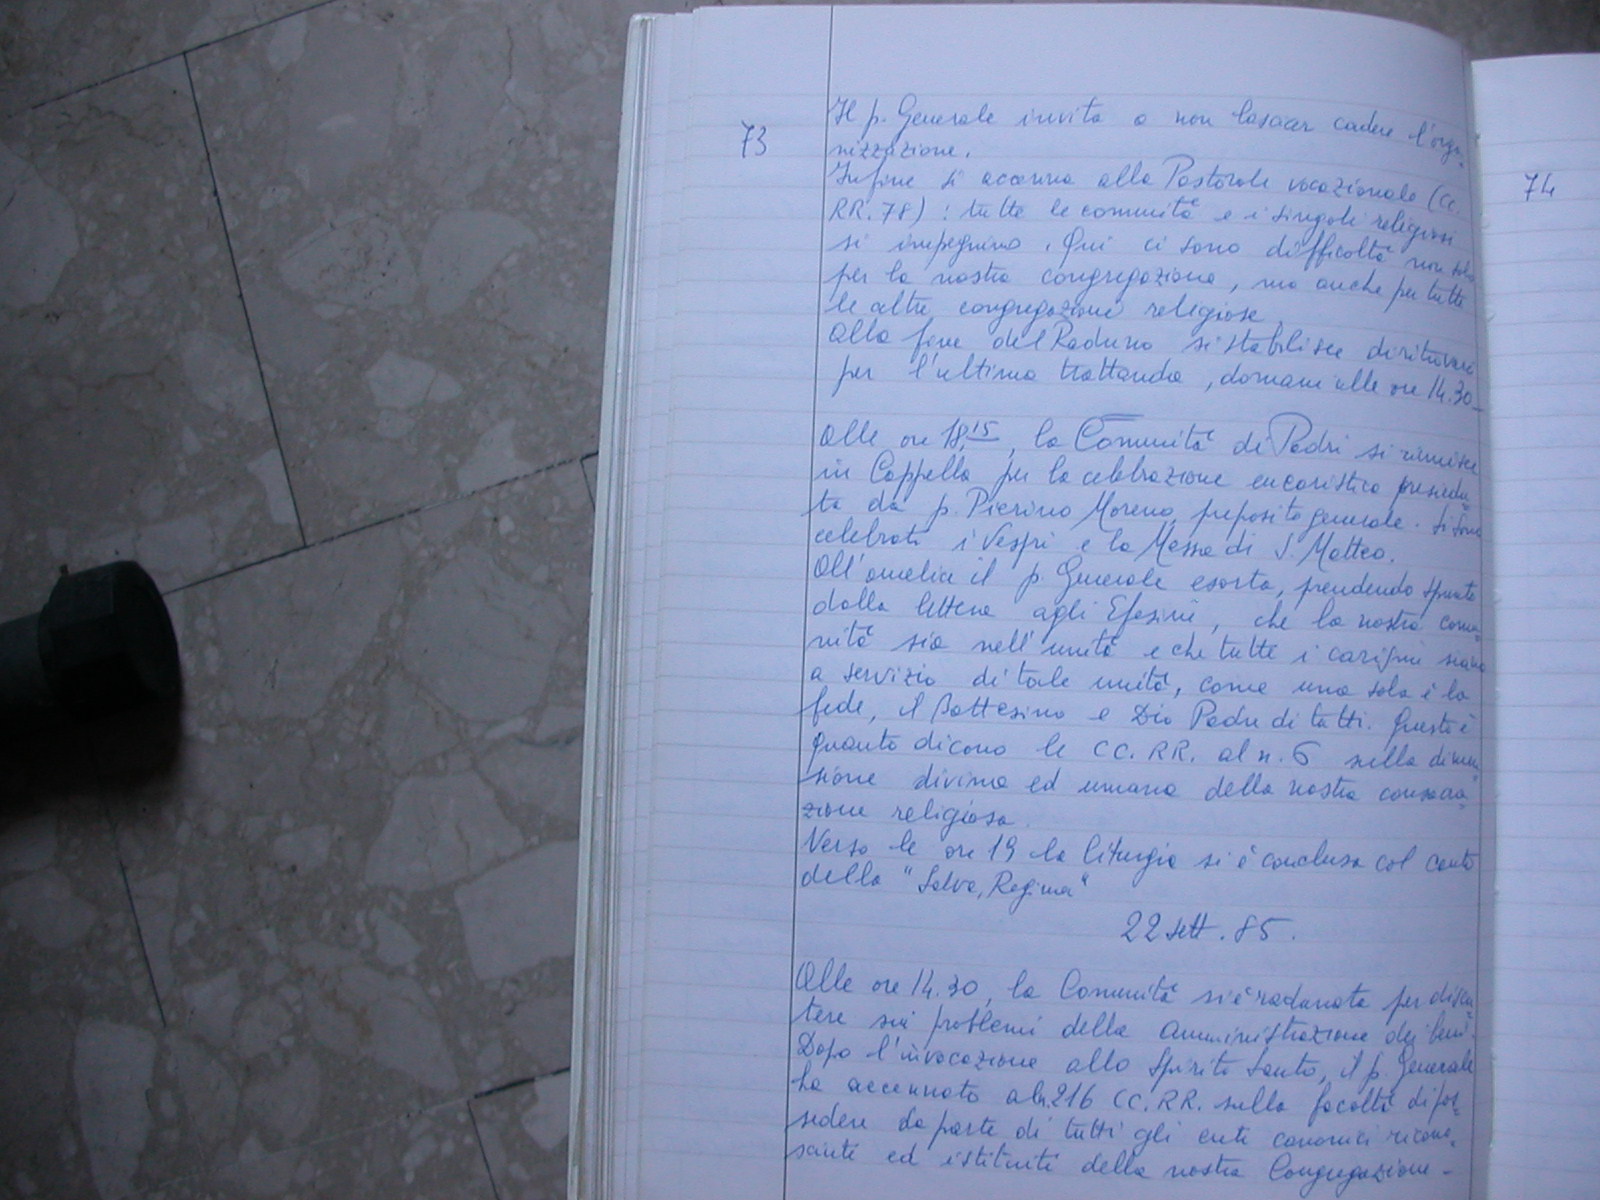 73
Il p. Generale invita a non lasciar cadere l'orga-
nizzazione.
Infine si accenna alla Pastorale vocazionale (CC.
RR. 78): tutte le comunità e i singoli religiosi
si impegnino. Qui ci sono difficoltà non solo
per la nostra congregazione, ma anche per tutte
le altre congregazioni religiose.
Alla fine del Raduno si stabilisce di ritrovarci
per l'ultima trattanda, domani alle ore 14.30_
Alle ore 18,15, la Comunità di Padri si riunisce
in Cappella per la celebrazione eucaristica presiedu-
ta da p. Pierino Moreno, preposito generale. Si sono
celebrati i Vespri e la Messa di S. Matteo.
All'omelia il p. Generale esorta, prendendo spunto
dalla lettera agli Efesini, che la nostra comu-
nità sia nell'unità e che tutti i carismi siano
a servizio di tale unità, come una sola è la
fede, il Battesimo e Dio Padre di tutti. Questo è
quanto dicono le CC. RR. al n. 6 sulla dimen-
sione divina ed umana della nostra consacra-
zione religiosa.
Verso le ore 19 la liturgia si è conclusa col canto
della "Salve, Regina"
22 sett. 85.
Alle ore 14.30, la Comunità si è radunata per discu-
tere sui problemi della amministrazione dei beni.
Dopo l'invocazione allo Spirito Santo, il p. Generale
ha accennato al n. 216 CC. RR. sulla facoltà di pos-
sedere da parte di tutti gli enti canonici ricono-
sciuti ed istituiti della nostra Congregazione -
74